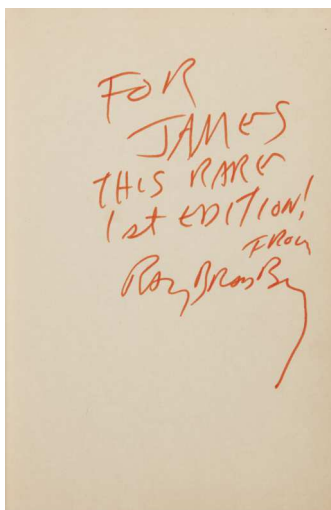 FOR
JAMES
THIS RARE
1st EDITION!
FROM
Ray Bradbury